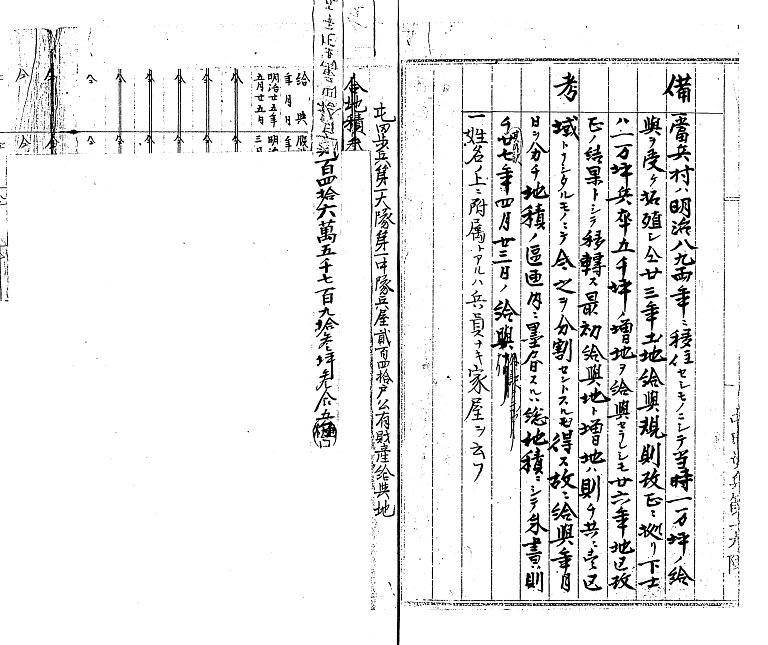 備考
當兵村ハ明治八九両年ニ移住セシモノニシテ当時一万坪ノ給
與ヲ受ケ拓殖シ仝廿三年土地給與規則改正ニ拠リ下士
ハ一万坪兵卒五千坪ノ増地ヲ給與セラレシモ廿六年地区改
正ノ結果トシテ移轉ス最初給與地ト増地ハ則チ共ニ壱区
域トナシタルモノニテ今之ヲ分割セントスルモ得ス故ニ給與年月
日ヲ分チ地積ノ区画内ニ墨書スルハ総地積ニシテ朱書ハ則
チ廿七年四月廿三日ノ給與
一姓名ノ上ニ附属トアルハ兵員ナキ家屋ヲ云フ
屯田歩兵第一大隊第一中隊兵屋貳百四拾戸公有財産給與地
合地積
百四拾六萬五千七百九拾参坪
給與
年月日
明治廿五年
五月廿五日
仝
仝
仝
仝
仝
仝